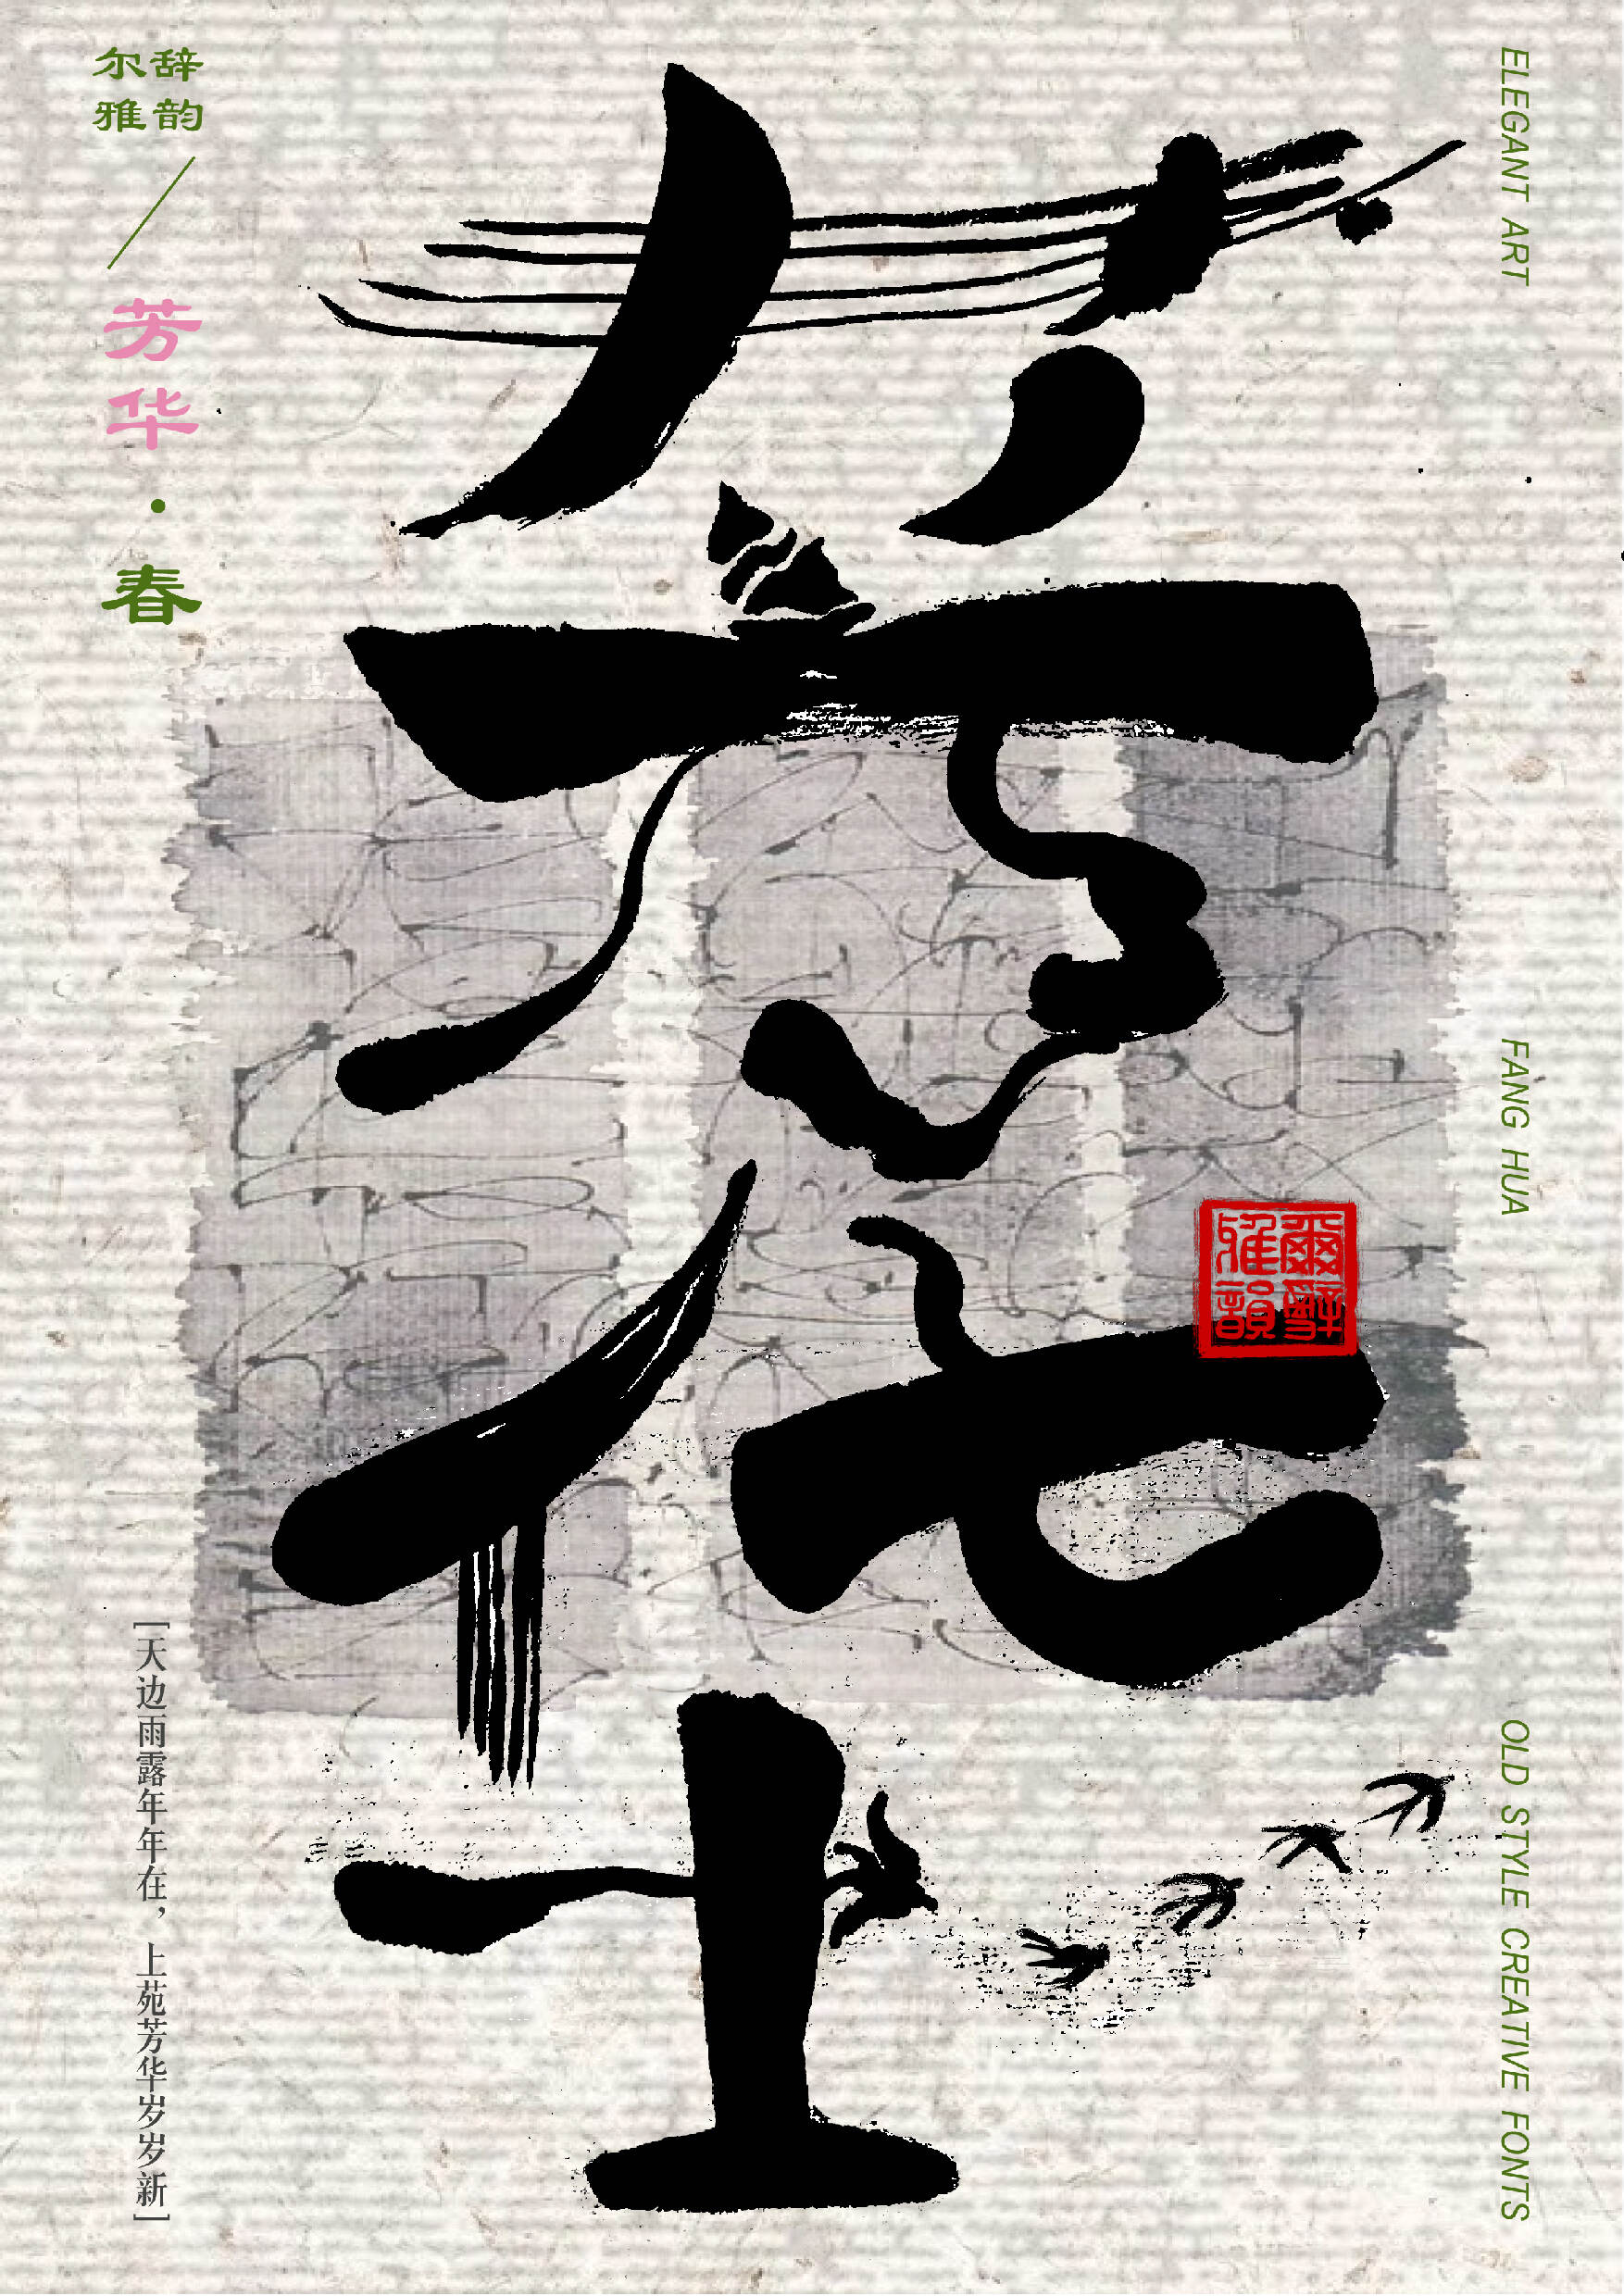 尔辞
雅韵
芳华·春
芳华
ELEGANT ART
FANG HUA
OLD STYLE CREATIVE FONTS
爾辭
雅韻
[天边雨露年年在，上苑芳华岁岁新]